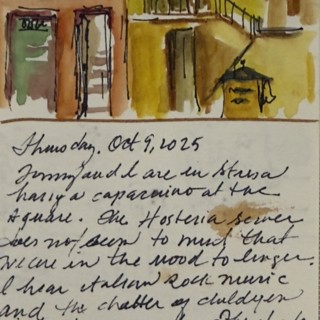 Thursday, Oct 9, 2025
and I are in Stresa
having a capaccino at the
square. The Hosteria server
does not seem to mind that
we are in the mood to linger.
I hear Italian Rock music
and the chatter of children